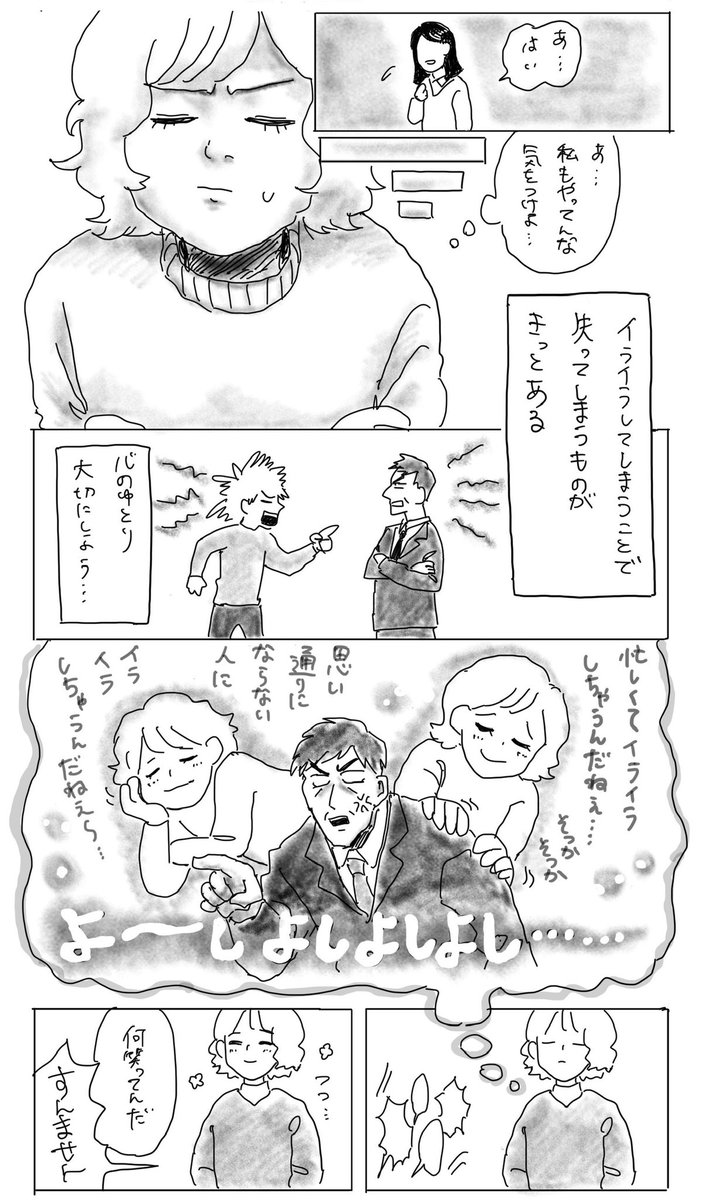 あ…
はい
あ…
私もやってんな
気をつけよ…
イライラしてしまうことで
失ってしまうものが
きっとある
心のゆとり
大切にしよう…
忙しくてイライラ
しちゃうんだねぇ…
そっか
そっか
思い
通りに
ならない
人に
イラ
イラ
しちゃうんだねぇら…
よ〜しよしよしよし……
フフ…
何笑ってんだ
すんません